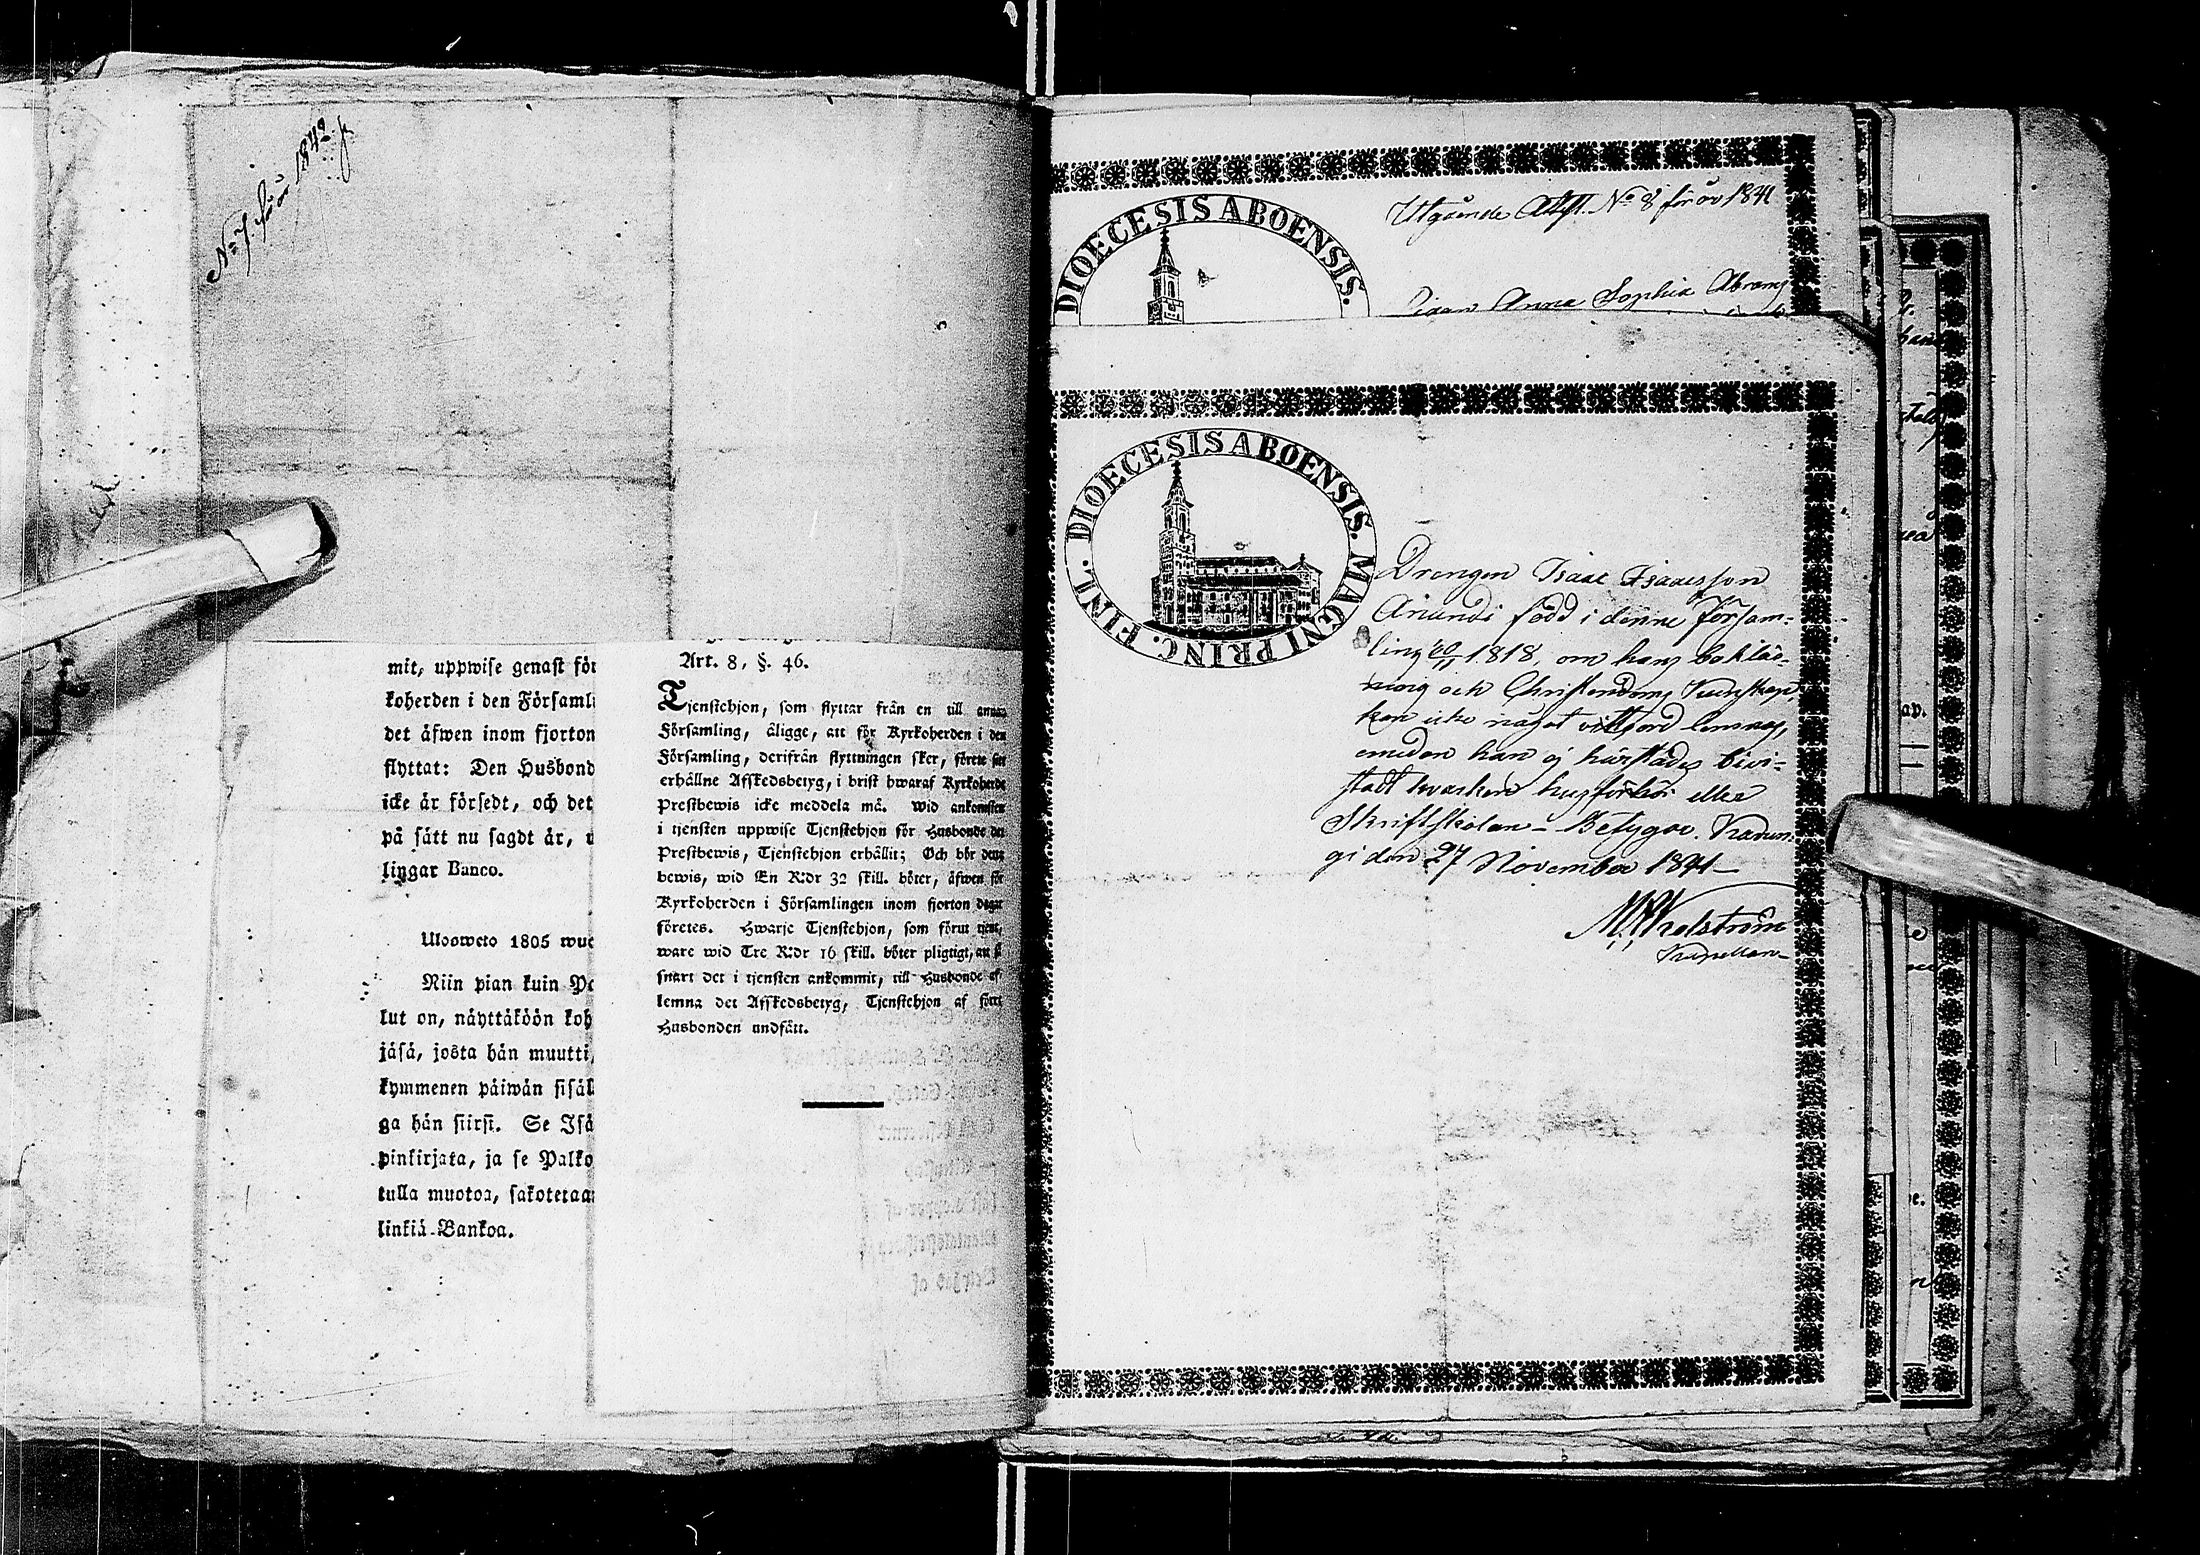 No 7. för år 1842.
mit, uppwise genast för
koherden i den Församl
det äfwen inom fjorton
flyttat: Den Husbond
icke är försedt, och det
på sätt nu sagdt är,
lingar Banco.
Ulosweto 1805 wuo
Niin pian kuin Pa
lut on, näyttäköön koh
jäsä, josta hän muutti,
kymmenen päiwän sisäll
ga hän siirsi. Se Isä
pinkirjata, ja se Palko
tulla muotoa, sakotetaa
linkiä Bankoa.
Art. 8, §. 46.
Tjenstehjon, som flyttar från en till annan
Församling, åligge, att för Kyrkoherden i den
Församling, derifrån flyttningen sker, förete sitt
erhållne Afskedsbetyg, i brist hwaraf Kyrkoherde
Prestbewis icke meddela må. Wid ankomsten
i tjensten uppwise Tjenstehjon för Husbonde det
Prestbewis, Tjenstehjon erhållit; Och bör detta
bewis, wid En R:dr 32 skill. böter, äfwen för
Kyrkoherden i Församlingen inom fjorton dagar
företes. Hwarje Tjenstehjon, som förut tjent,
ware wid Tre R:dr 16 skill. böter pligtigt, att så
snart det i tjensten ankommit, till Husbonde af
lemna det Afskedsbetyg, Tjenstehjon af förre
Husbonden undfått.
DIOECESIS ABOENSIS.
Utgående Attst. No 8 för år 1841
Pigan Anna Sophia Abrams
DIOECESIS ABOENSIS. MAGNI PRINC. FINL.
Drengen Isaac Isaacsson
Anundi född i denne Försam-
ling 20/11 1818, om hans bokläs-
ning och Christendoms Kunskap,
kan icke något vittsord lemnas,
emedan han ej härstädes bivi-
stadt hvarken husförhör eller
Skriftskolan – Betygar. Karun-
gi den 27 November 1841 –
Kapellan –